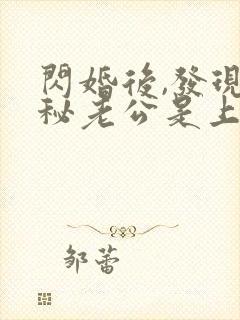 閃婚後,發現
秘老公是上
邹蕾